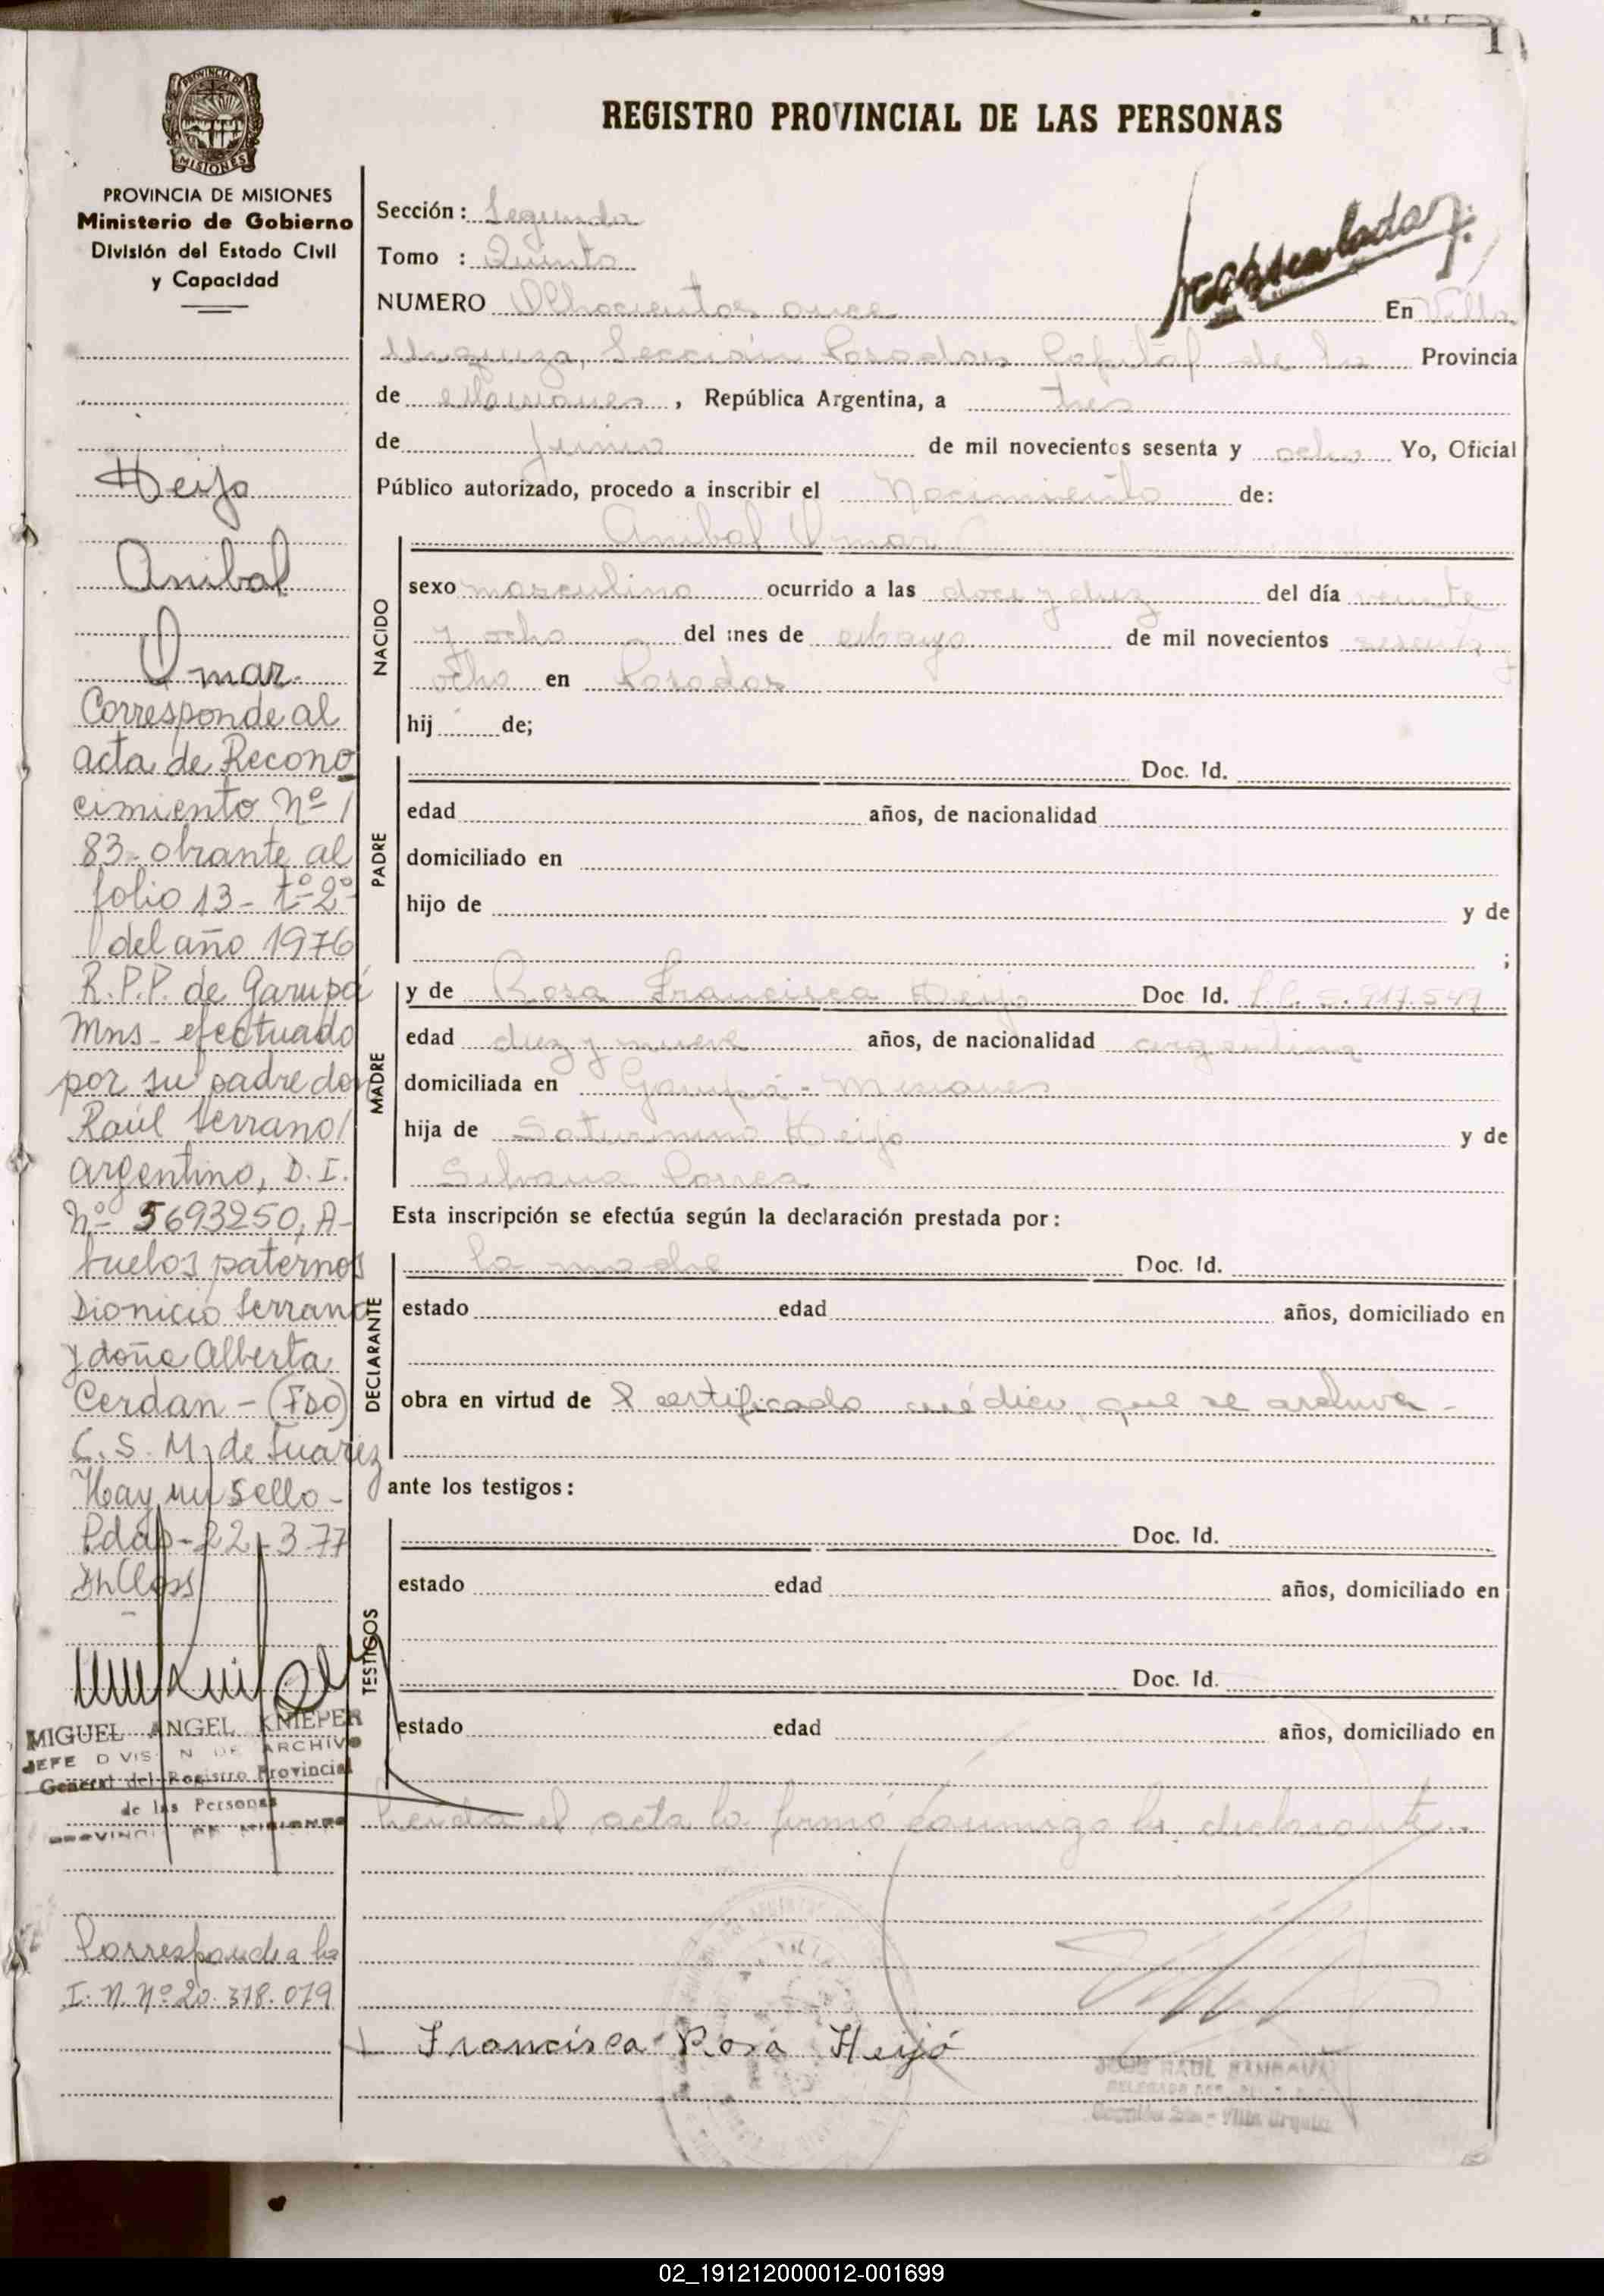 1
PROVINCIA DE MISIONES
PROVINCIA DE MISIONES
Ministerio de Gobierno
División del Estado Civil
y Capacidad
Heijo
Anibal
Omar.
Corresponde al
acta de Recono
cimiento Nº /
83- obrante al
folio 13- tº 2º
del año 1976
R.P.P. de Garupá
Mns- efectuado
por su padre don
Raúl Serrano/
argentino, D.I.
Nº 5693250, A-
buelos paternos
Dionicio Serrano
y doña Alberta
Cerdan - (Fdo)
C. S. M. de Suarez
Hay un sello -
Pdas-22-3-77
MIGUEL ANGEL KNIEPER
JEFE DIVISION DE ARCHIVO
General del Registro Provincial
de las Personas
PROVINCIA DE MISIONES
Corresponde a la
I. N. Nº 20.318.079
REGISTRO PROVINCIAL DE LAS PERSONAS
Sección: Segunda
Tomo : Quinto
NUMERO Ochocientos once En Villa
Urquiza, Sección Posadas Capital de la Provincia
de Misiones, República Argentina, a tres
de Junio de mil novecientos sesenta y ocho Yo, Oficial
Público autorizado, procedo a inscribir el Nacimiento de:
NACIDO
Anibal Omar
sexo masculino ocurrido a las doce y diez del día veinte
y ocho del mes de Mayo de mil novecientos sesenta y
ocho en Posadas
hij de;
PADRE
Doc. Id.
edad años, de nacionalidad
domiciliado en
hijo de y de
;
MADRE
y de Rosa Francisca Heijo Doc Id. L.C. 5.917.549
edad diez y nueve años, de nacionalidad argentina
domiciliada en Garupá - Misiones
hija de Saturnino Heijo y de
Silvana Correa
Esta inscripción se efectúa según la declaración prestada por:
DECLARANTE
la madre Doc. Id.
estado edad años, domiciliado en
obra en virtud de l certificado médico, que se archiva -
ante los testigos:
TESTIGOS
Doc. Id.
estado edad años, domiciliado en
Doc. Id.
estado edad años, domiciliado en
Leída el acta la firmó conmigo la declarante.
Francisca Rosa Heijó
JOSE RAUL SANDOVAL
Villa Urquiza
02_191212000012-001699